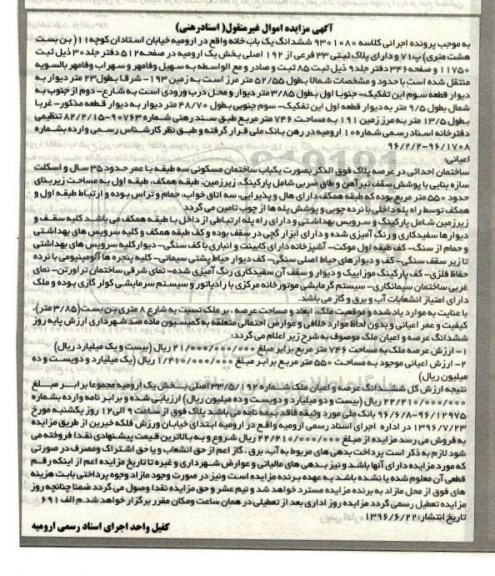 آگهی مزایده اموال غیرمنقول( اسناد رهنی)
به موجب پرونده اجرائی کلاسه ۹۳۰۱۰۸۰ ششدانگ یک باب خانه واقع در ارومیه خیابان استادان کوچه۱۱( بن بست
هشت متری) پ۷۱ و دارای پلاک ثبتی ۳۳ فرعی از ۱۹۲ اصلی بخش یک ارومیه در صفحه ۵۱۲ دفتر جلد ۳۰ ذیل ثبت
۱۱۷۵۰ و صفحه ۳۴۶ دفتر جلد ذیل ثبت ۸۵ ثبت و صادر و مع الواسطه به سهیل وفامهر و سهراب وفامهر بالسویه
منتقل شده است با حدود و مشخصات شمالا بطول ۵۲/۵۵ متر مرز است به زمین ۱۹۳- شرقا بطول ۲۳ متر دیوار به
دیوار قطعه سوم این تفکیک- جنوبا اول بطول ۳/۸۵ متر دیوار و محل درب ورودی است به شارع- دوم از جنوب به
شمال بطول ۹/۵ متر به دیوار قطعه اول این تفکیک- سوم جنوبی بطول ۴۸/۷۰ متر دیوار به دیوار قطعه مذکور- غربا
بطول ۱۳/۵ متر به مرز زمین ۱۹۱ به مساحت ۷۴۶ متر مربع طبق سند رهنی شماره ۹۰۷۶۳-۸۲/۲/۱۵ تنظیمی
دفترخانه اسناد رسمی شماره ۱۰ ارومیه در رهن بانک ملی قرار گرفته و طبق نظر کارشناس رسمی وارده بشماره
۹۶۱۷۰۸-۹۶/۲/۲
اعیانی:
ساختمان احداثی در عرصه پلاک فوق الذکر بصورت یکباب ساختمان مسکونی سه طبقه با عمر حدود ۳۵ سال و اسکلت
سازه بنایی با پوشش سقف تیرآهن و طاق ضربی شامل پارکینگ، زیرزمین، طبقه همکف، طبقه اول به مساحت زیربنای
حدود ۵۵۰ متر مربع بوده که طبقه همکف دارای هال و پذیرایی، سه اتاق خواب، حمام و تراس بوده و ارتباط طبقه اول و
همکف توسط راه پله داخلی با نرده چوبی و پوشش پله ها از چوب تامین می گردد.
زیرزمین شامل پارکینگ و سرویس بهداشتی و دارای راه پله ارتباطی از داخل با طبقه همکف می باشد کلیه سقف و
دیوارها سفیدکاری و رنگ آمیزی شده و دارای ابزار گچی در سقف بوده و کف طبقه همکف و کلیه سرویس های بهداشتی
و حمام از سنگ- کف طبقه اول موکت- آشپزخانه دارای کابینت و انباری با کف سنگی- دیوار کلیه سرویس های بهداشتی
تا زیر سقف سنگی- کف و دیوارهای حیاط اصلی سنگی- کف دیوار حیاط پشتی سیمانی- کلیه پنجره ها آلومینیومی با نرده
حفاظ فلزی- کف پارکینگ موزاییک و دیوار و سقف آن سفیدکاری رنگ آمیزی شده- نمای شرقی ساختمان تراورتن- نمای
غربی ساختمان سیمانکاری- سیستم گرمایشی موتورخانه مرکزی با رادیاتور و سیستم سرمایشی کولر گازی بوده و ملک
دارای امتیاز انشعابات آب و برق و گاز می باشد.
با عنایت به موارد یاد شده و موقعیت ملک، ابعاد و مساحت عرصه، بر ملک نسبت به شارع ۸ متری بن بست(۳/۸۵ متر)-
کیفیت و عمر اعیانی و بدون لحاظ موارد خلافی و عوارض احتمالی متعلقه به کمیسیون ماده صد شهرداری ارزش پایه روز
ششدانگ عرصه و اعیان ملک موصوف به شرح زیر اعلام می گردد:
۱- ارزش عرصه ملک به مساحت ۷۴۶ متر مربع برابر مبلغ ۲۱/۰۰۰/۰۰۰/۰۰۰ ریال (بیست و یک میلیارد ریال)
۲- ارزش اعیانی موجود به مساحت ۵۵۰ متر مربع برابر مبلغ ۱/۲۱۰/۰۰۰/۰۰۰ ریال (یک میلیارد و دویست و ده
میلیون ریال)
نتیجه ارزش کل ششدانگ عرصه و اعیان ملک شماره ۳۳/۵/۱۹۲ اصلی بخش یک ارومیه مجموعا برابر مبلغ
۲۲/۲۱۰/۰۰۰/۰۰۰ ریال (بیست و دو میلیارد و دویست و ده میلیون ریال) ارزیابی شده و برابر نامه وارده بشماره
۹۶۱۲۹۷۵-۹۶/۶/۸ بانک ملی مورد وثیقه فاقد بیمه نامه می باشد پلاک فوق از ساعت ۹ الی ۱۲ روز یکشنبه مورخ
۱۳۹۶/۷/۲۳ در اداره اجرای اسناد رسمی ارومیه واقع در ارومیه ابتدای خیابان ورزش فلکه خیرین از طریق مزایده
به فروش می رسد مزایده از مبلغ ۲۲/۲۱۰/۰۰۰/۰۰۰ ریال شروع و به بالاترین قیمت پیشنهادی نقدا فروخته می
شود لازم به ذکر است پرداخت بدهی های مربوط به آب، برق، گاز اعم از حق انشعاب و یا حق اشتراک و مصرف در صورتی
که مورد مزایده دارای آنها باشد و نیز بدهی های مالیاتی و عوارض شهرداری و غیره تا تاریخ مزایده اعم از اینکه رقم
قطعی آن معلوم شده یا نشده باشد به عهده برنده مزایده است ونیز در صورت وجود مازاد وجوه پرداختی بابت هزینه
های فوق از محل مازاد به برنده مزایده مسترد خواهد شد و نیم عشر و حق مزایده نقدا وصول می گردد ضمنا چنانچه روز
مزایده تعطیل رسمی گردد مزایده روز اداری بعد از تعطیلی در همان ساعت ومکان مقرر برگزار خواهد شد.م الف ۶۹۱
تاریخ انتشار: ۱۳۹۶/۶/۲۲
کفیل واحد اجرای اسناد رسمی ارومیه